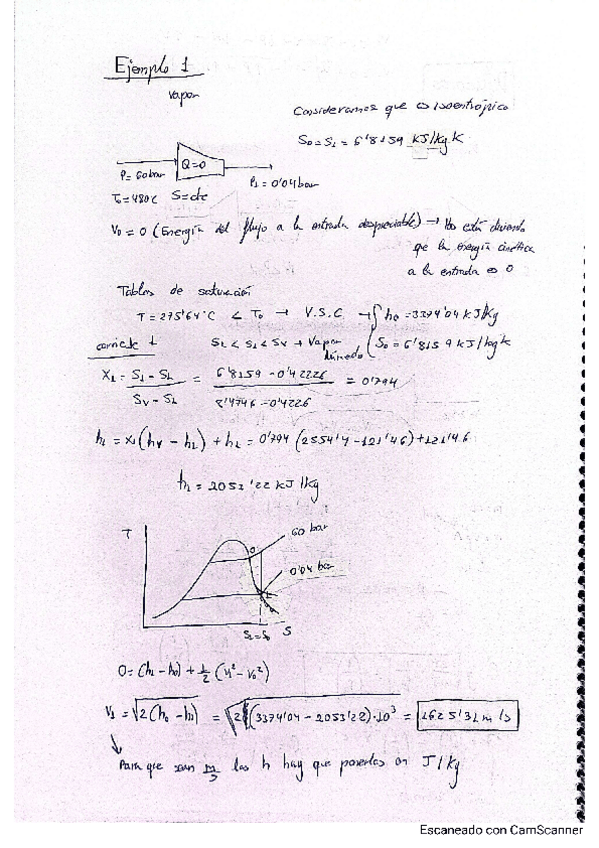 Ejemplo 1
vapor
Consideramos que es isoentrópico
S0 = S1 = 6'8159 KJ/kg K
P= 60 bar
Q=0
P1 = 0'04 bar
T0 = 480 C
S=cte
V0 = 0 (Energía del flujo a la entrada despreciable) → Nos está diciendo
que la energía cinética
a la entrada es 0
Tablas de saturación
T = 275'64°C < T0 → V.S.C → { h0 = 3374'04 KJ/kg
S0 = 6'8159 KJ/kg K
SL < S1 < SV → Vapor
húmedo
X1 = S1 - SL / SV - SL = 6'8159 - 0'42226 / 8'4746 - 0'4226 = 0'794
h1 = x1 (hV - hL) + hL = 0'794 (2554'4 - 121'46) + 121'46
h1 = 2053'22 KJ/kg
T
60 bar
0
0'04 bar
S1 = S0
S
0 = (h1 - h0) + 1/2 (V1² - V0²)
V1 = √2(h0 - h1) = √2((3374'04 - 2053'22)·10³ = 1625'31 m/s
Para que sean m/s las h hay que ponerlas en J/kg
Escaneado con CamScanner